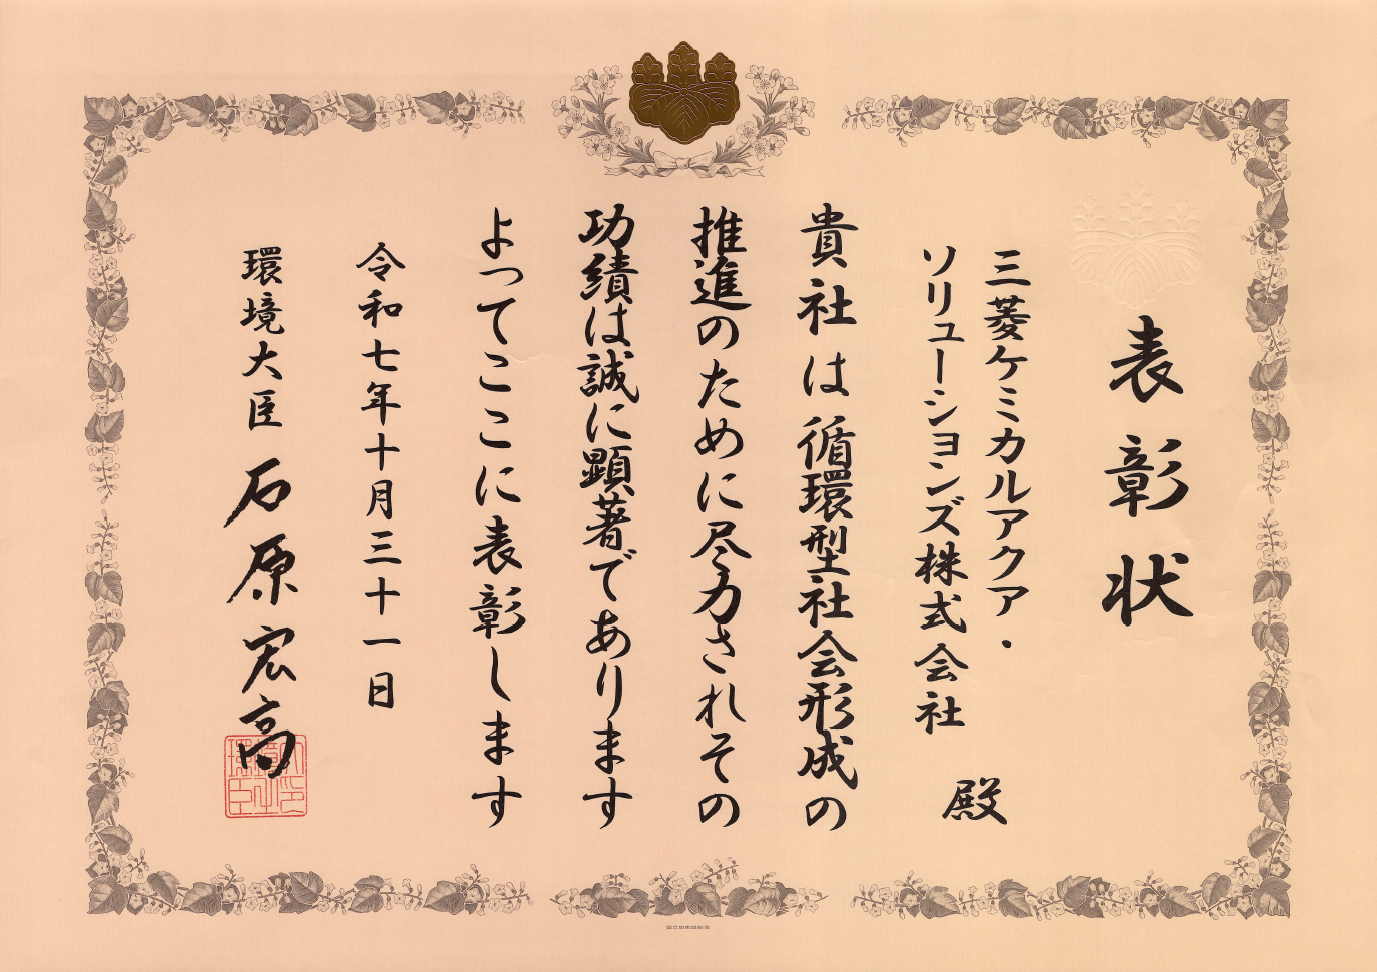 表彰状
三菱ケミカルアクア・
ソリューションズ株式会社
殿
貴社は循環型社会形成の
推進のために尽力されその
功績は誠に顕著であります
よってここに表彰します
令和七年十月三十一日
環境大臣 石原宏高